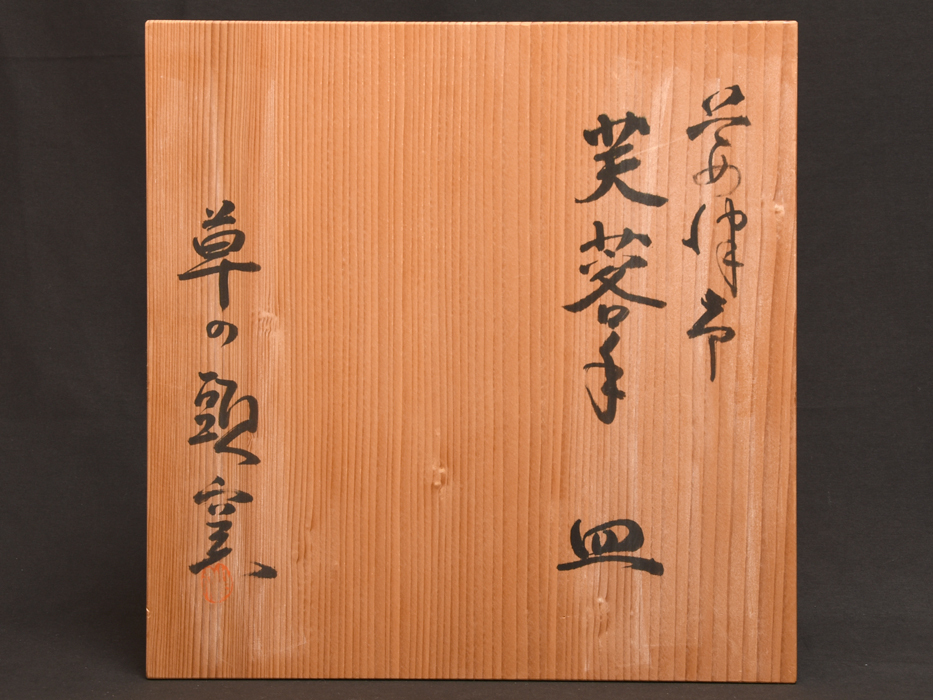 芙蓉手 皿
草の頭窯